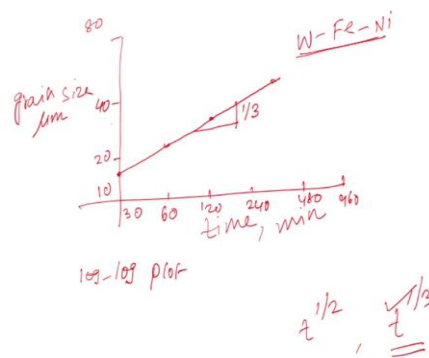 80
W-Fe-Ni
grain size
μm
40
1/3
20
10
30 60 120 240 480 960
time, min
log-log plot
t^1/2 , t^1/3